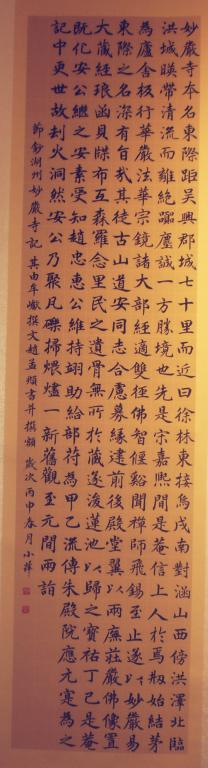 妙嚴寺本名東際距吳興郡城七十里而近曰徐林東接烏戍南對涵山西傍洪澤北臨
洪城暎帶清流而離絕囂塵誠一方勝境也先是宋嘉熙間是菴信上人於焉刱始結茅
為廬舍板行華嚴法華宗鏡諸大部經適雙徑佛智偃谿聞禪師飛錫至止遂以妙嚴易
東際之名深有旨哉其徒古山道安同志合慮募緣建前後殿堂翼以兩廡莊嚴佛像置
大藏經琅函貝牒布互森羅念里民之遺骨無所於藏遂浚蓮池以歸之寶祐丁巳是菴
既化安公繼之安素受知趙忠惠公維持翊助給部符為甲乙流傳朱殿院應元寔為之
記中更世故劫火洞然安公乃聚凡礫掃煨燼一新舊觀至元間兩詣
節鈔湖州妙嚴寺記其由牟巘撰文趙孟頫書并撰額歲次丙申春月小萍